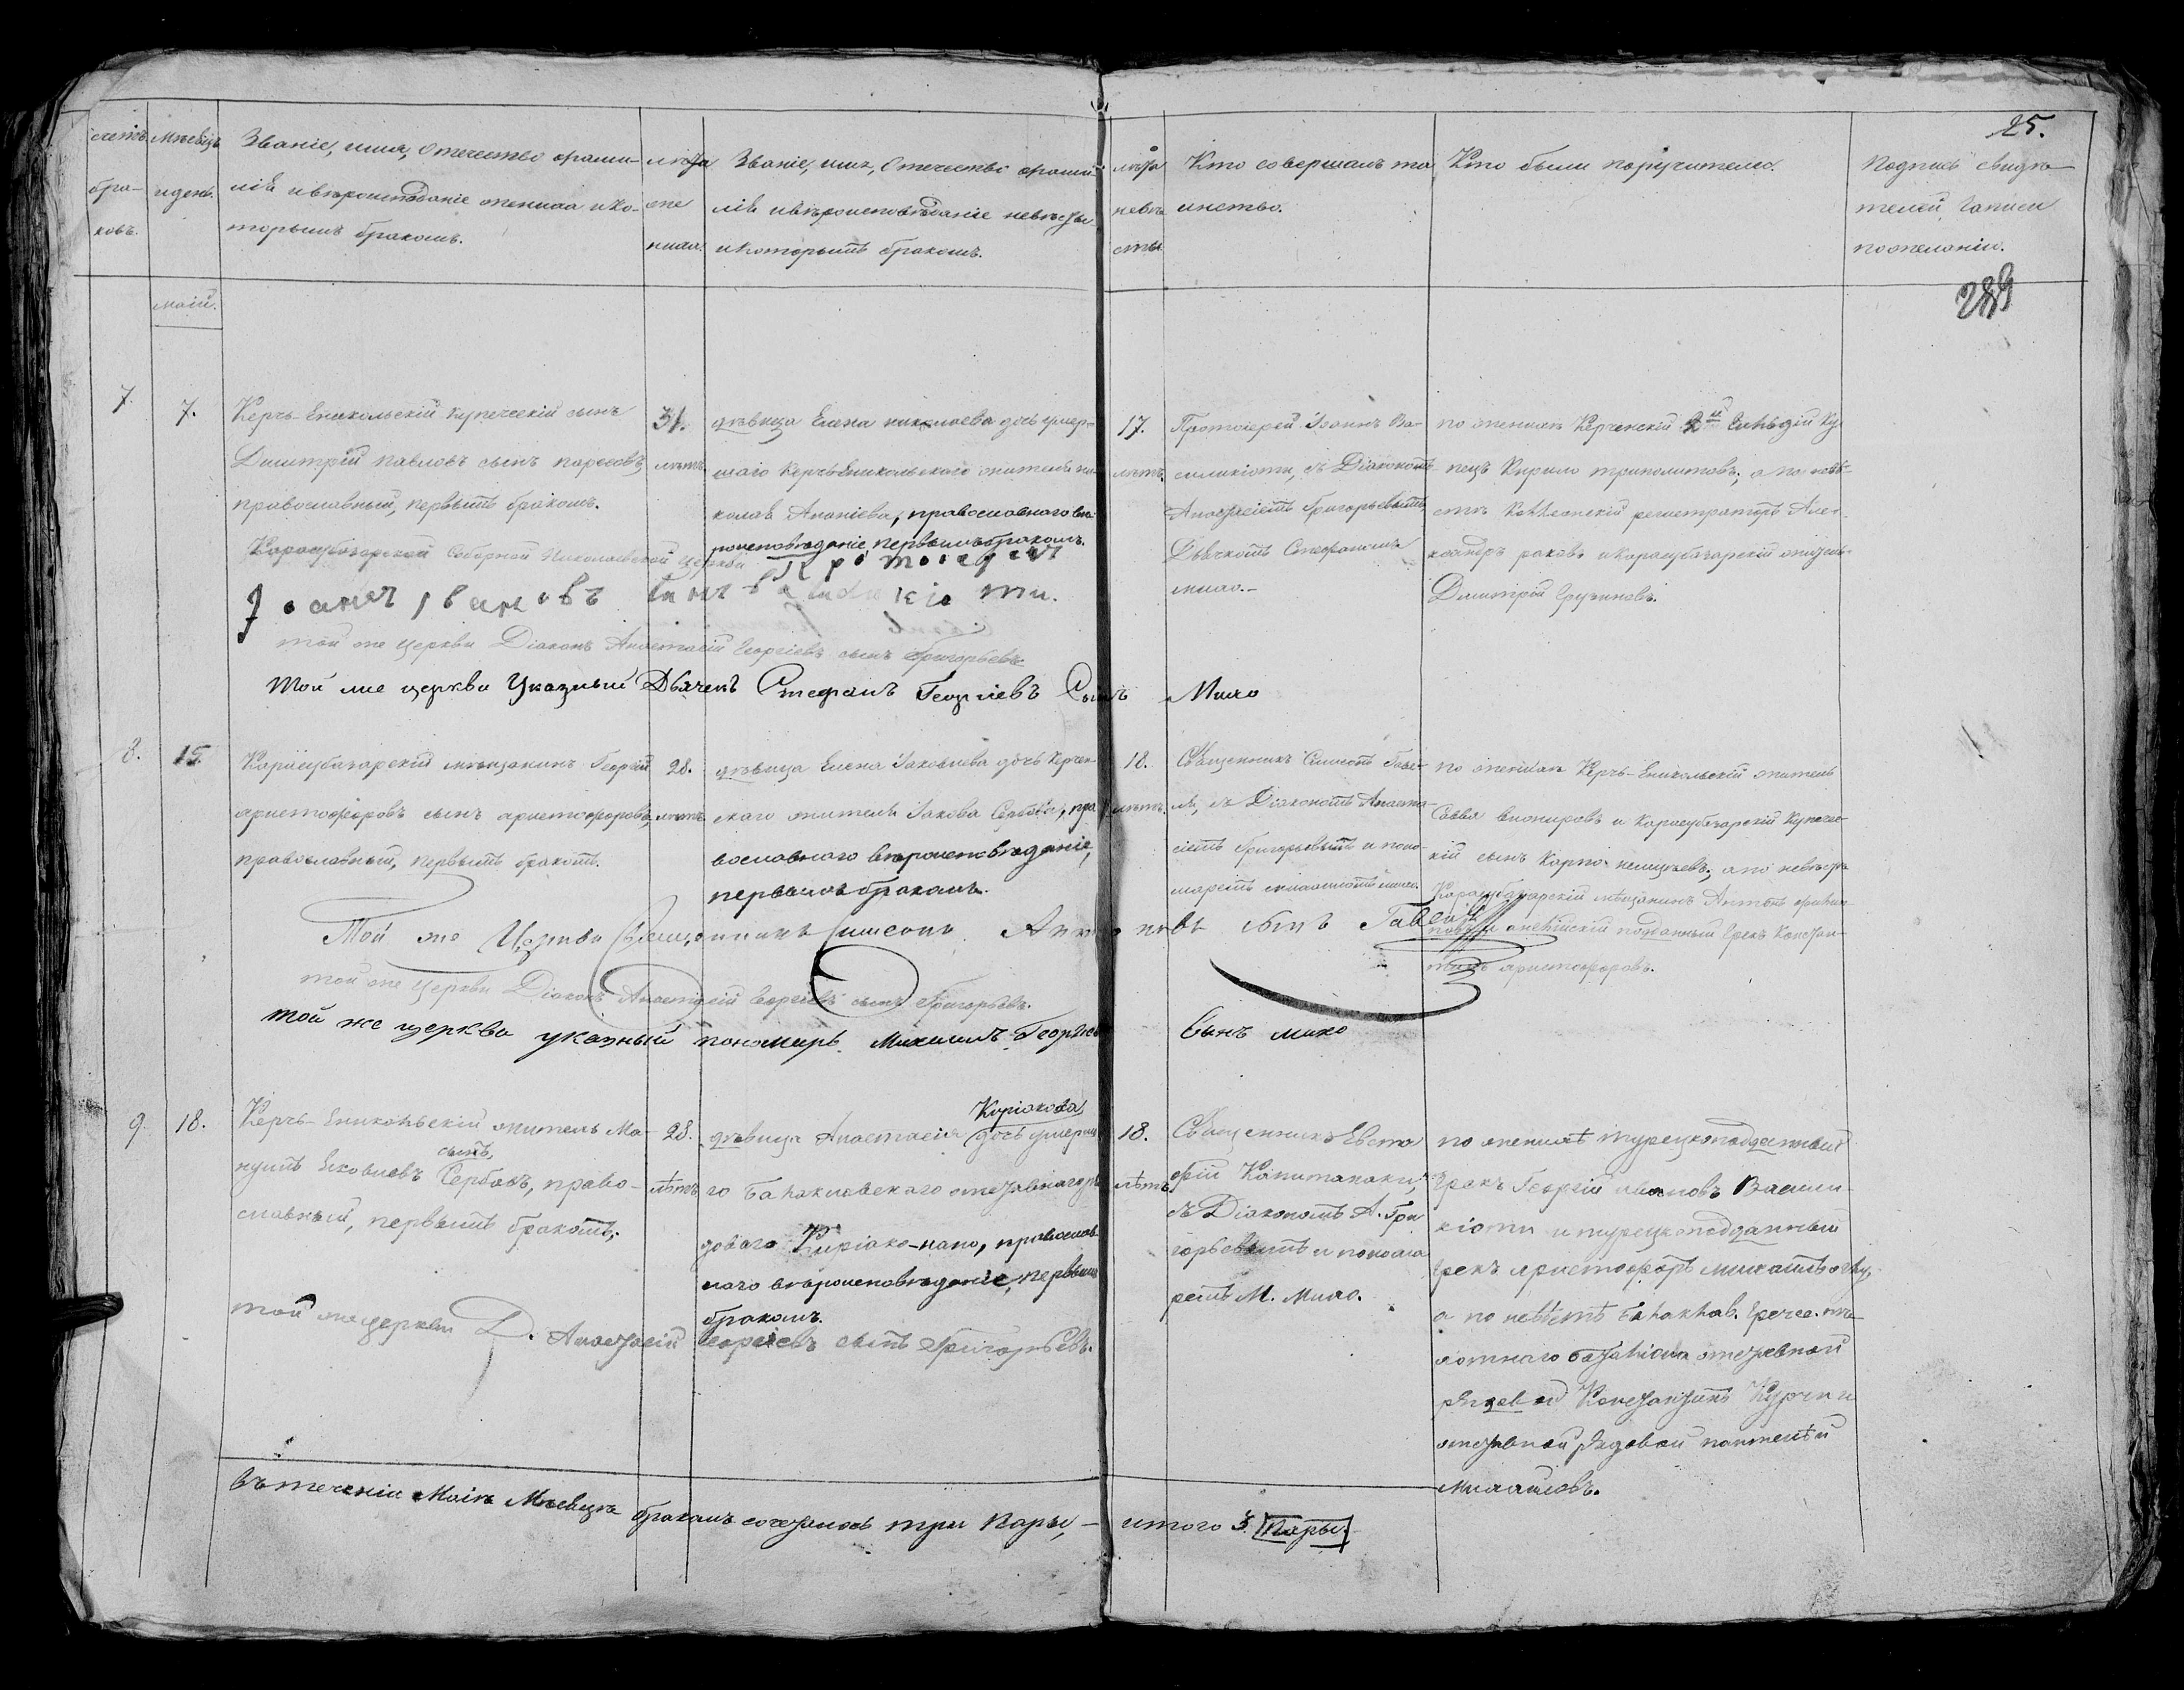 25.
счетъ
бра-
ковъ.
Мѣсяцъ
и день.
Званіе, имя, Отечество фами-
лія и вѣроисповѣданіе жениха и ко-
торымъ бракомъ.
лѣта
же
ниха.
Званіе, имя, Отечество фами-
лія и вѣроисповѣданіе невѣсты
и которымъ бракомъ.
лѣта
невѣ
сты
Кто совершалъ та
инство.
Кто были поручители.
Подпись свидѣ-
телей записи
по желанію.
289
маій.
7.
7.
Керчь-Еникольскій купеческій сынъ
Дмитрій Павловъ сынъ
православный, первымъ бракомъ.
31.
лѣтъ
дѣвица Елена николаева дочь умер-
шаго Керчьеникольскаго жителя ни-
колая Ананіева, православнаго вѣ-
роисповѣданіе, первымъ бракомъ.
17.
лѣтъ.
Протоіерей Іоаннъ Ва-
силикіоти, съ Діакономъ
Анастасіемъ Григорьевымъ
Дьячкомъ Стефаномъ
мило.-
по женихѣ Керченскій 2й гильдіи Ку
пецъ Кирило триполитовъ; а по невѣ-
стѣ Коллежскій регистраторъ Алек-
сандръ раковъ и карасубазарскій житель
Дмитрій Грузиновъ.
Карасубазарской Соборной Николаевской церкви Протоіерей
Іоаннъ Ивановъ сынъ василикіоти.
той же церкви Діаконъ Анастасій Георгіевъ сынъ Григорьевъ
той же церкви Указный Дьячекъ Стефанъ Георгіевъ Сынъ Мило
8.
15
Карасубазарскій мѣщанинъ Георгій
христофоровъ сынъ христофоровъ,
православный, первымъ бракомъ.
28.
лѣтъ
дѣвица Елена Іаковлева дочь Керчен-
скаго жителя Іакова Сербова, пра
вославнаго вѣроисповѣданіе,
первымъ бракомъ.
18.
лѣтъ.
Священникъ Симеонъ Гавѣ-
ля, съ Діакономъ Анаста-
сіемъ Григорьевымъ и поно-
маремъ михаиломъ мило.
по женихѣ Керчь-Еникольскій житель
Савва и Карасубазарскій Купече-
кій сынъ Карпо а по невѣстѣ
Карасубазарскій мѣщанинъ Антонъ
подданный Грекъ Констан-
тинъ христофоровъ.
Той же Церкви Священникъ Симеонъ сынъ Гавеля
той же Церкви Діаконъ Анастасій Георгіевъ сынъ Григорьевъ.
той же церкви указный пономарь Михаилъ Георгіевъ Сынъ мило
9.
18.
Керчь-Еникольскій житель Ма-
нуилъ Яковлевъ сынъ, Сербовъ, право-
славный, первымъ бракомъ,.
28.
лѣтъ
дѣвица Анастасія Киріакова дочь умерша
го Балаклавскаго отставнаго ря
доваго Киріако-папо, православ
наго вѣроисповѣданіе, первымъ
бракомъ.
18.
лѣтъ
Священникъ Евста
фій Капитанаки,
съ Діакономъ А. Гри
горьевымъ и понома
ремъ М. Мило.
по женихѣ турецкоподданный
Грекъ Георгій ивановъ Васили-
кіоти и турецкоподданный
грекъ христофоръ
а по невѣстѣ Балаклав. Грече. пѣ-
хотнаго баталіона отставной
рядовой Константинъ Курти и
отставной рядовой пантелѣй
михайловъ.
той же церкви Д. Анастасій Георгіевъ сынъ Григорьевъ.
въ теченіи Маія Мѣсяца бракомъ сочеталось три пары, — итого 3. пары.